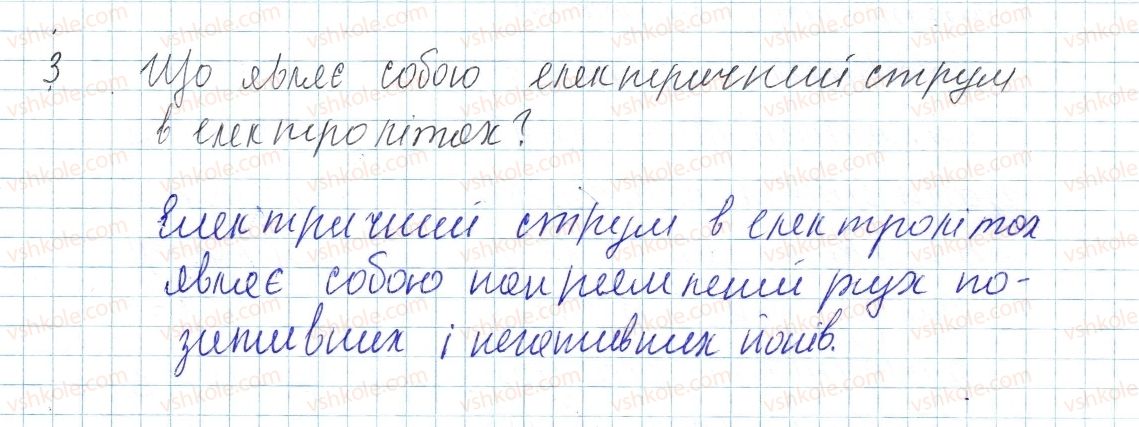 3. Що являє собою електричний струм
в електролітах?
Електричний струм в електролітах
являє собою напрямлений рух по-
зитивних і негативних йонів.